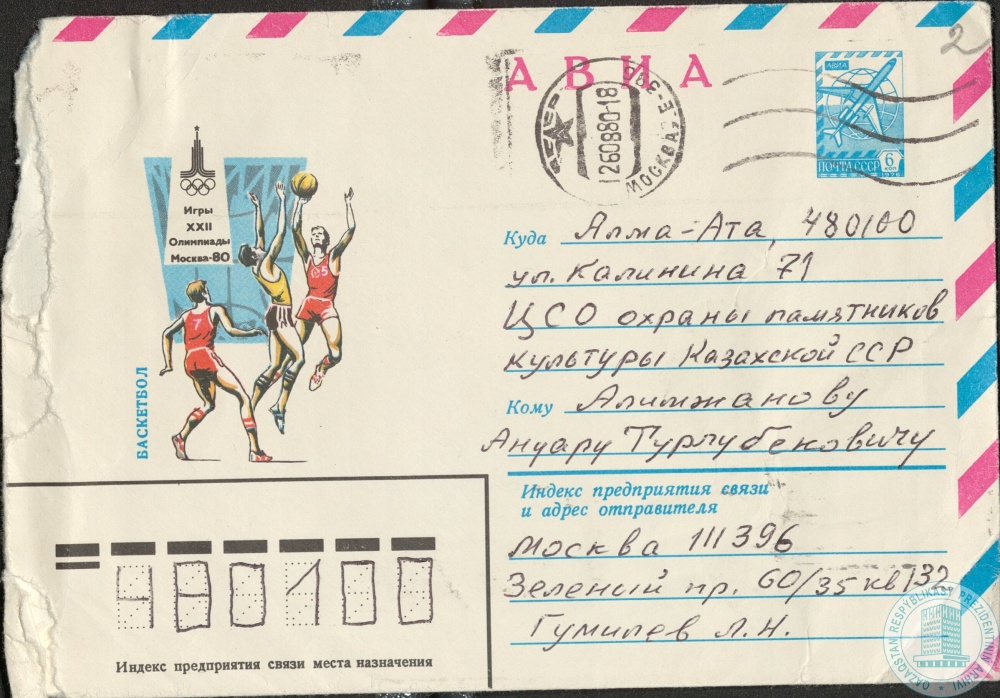 АВИА
2
МОСКВА, Е-396
26 08 80-18
АВИА
ПОЧТА СССР
6 коп
1978
Игры
XXII
Олимпиады
Москва-80
БАСКЕТБОЛ
7
5
Куда Алма-Ата, 480100
ул. Калинина 71
ЦСО охраны памятников
культуры Казахской ССР
Кому Алимжанову
Ануару Турлубековичу
Индекс предприятия связи
и адрес отправителя
Москва 111396
Зеленый пр. 60/35 кв 132
Гумилев Л.Н.
480100
Индекс предприятия связи места назначения
QAZAQSTAN RESPÝBLIKASY PREZIDENTINIŃ ARHIVI